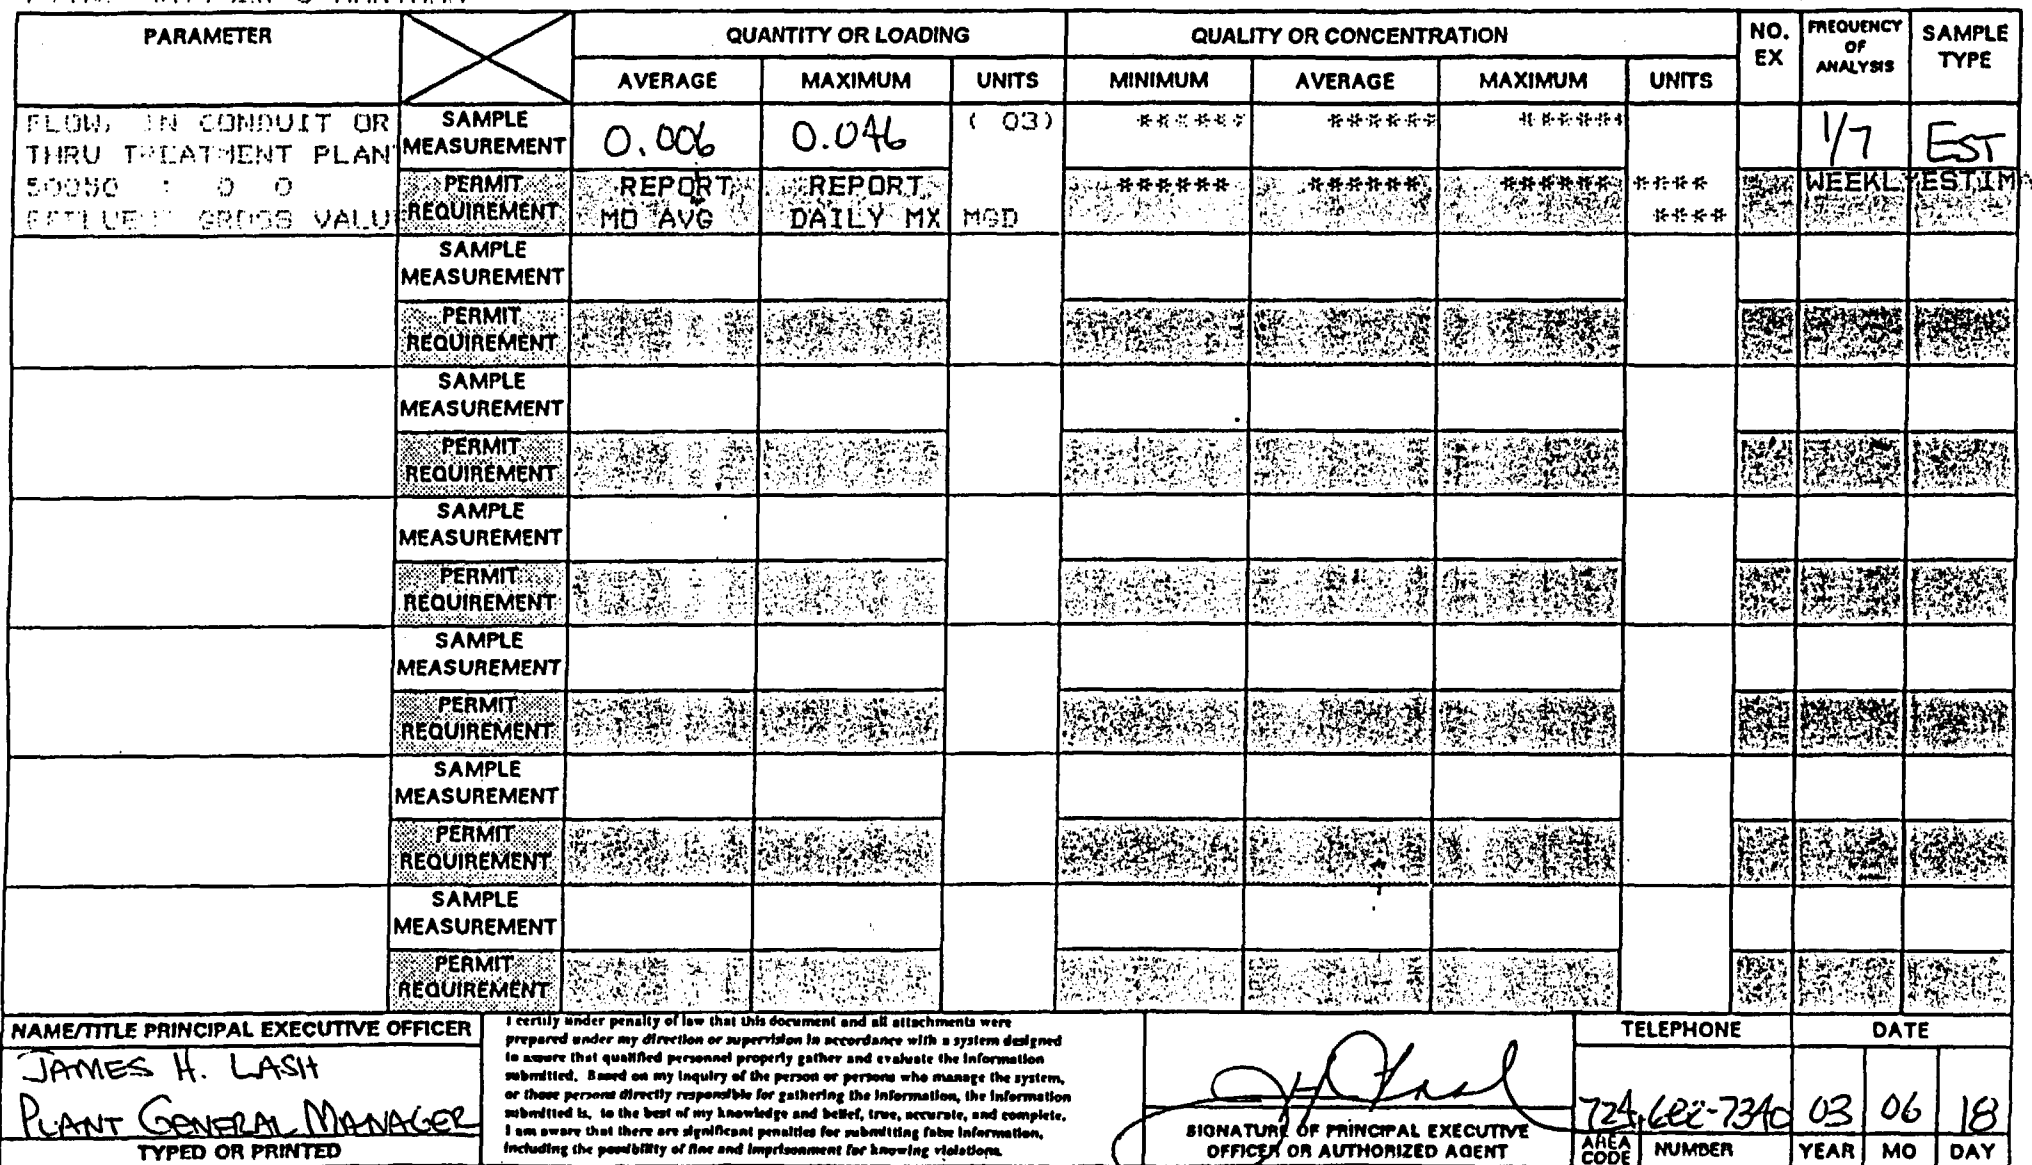 PARAMETER QUANTITY OR LOADING QUALITY OR CONCENTRATION NO. EX FREQUENCY OF ANALYSIS SAMPLE TYPE
AVERAGE MAXIMUM UNITS MINIMUM AVERAGE MAXIMUM UNITS
FLOW, IN CONDUIT OR SAMPLE ( 03) ****** ****** ******
THRU TREATMENT PLAN MEASUREMENT 0.006 0.046 1/7 EST
50050 0 0 PERMIT REPORT REPORT ****** ****** ****** **** WEEKLY ESTIMA
EFFLUENT GROSS VALU REQUIREMENT MO AVG DAILY MX MGD ****
SAMPLE
MEASUREMENT
PERMIT
REQUIREMENT
SAMPLE
MEASUREMENT
PERMIT
REQUIREMENT
SAMPLE
MEASUREMENT
PERMIT
REQUIREMENT
SAMPLE
MEASUREMENT
PERMIT
REQUIREMENT
SAMPLE
MEASUREMENT
PERMIT
REQUIREMENT
SAMPLE
MEASUREMENT
PERMIT
REQUIREMENT
NAME/TITLE PRINCIPAL EXECUTIVE OFFICER
JAMES H. LASH
PLANT GENERAL MANAGER
TYPED OR PRINTED
I certify under penalty of law that this document and all attachments were
prepared under my direction or supervision in accordance with a system designed
to assure that qualified personnel properly gather and evaluate the information
submitted. Based on my inquiry of the person or persons who manage the system,
or those persons directly responsible for gathering the information, the information
submitted is, to the best of my knowledge and belief, true, accurate, and complete.
I am aware that there are significant penalties for submitting false information,
including the possibility of fine and imprisonment for knowing violations.
SIGNATURE OF PRINCIPAL EXECUTIVE
OFFICER OR AUTHORIZED AGENT
TELEPHONE DATE
724 682-7340 03 06 18
AREA CODE NUMBER YEAR MO DAY